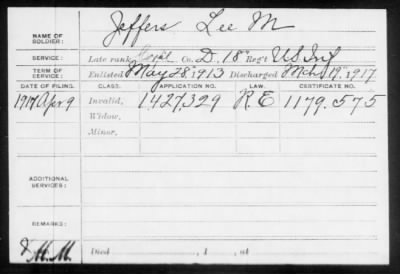 NAME OF SOLDIER: Jeffers Lee M
SERVICE: Late rank Co. D, 18" Reg't US Inf
TERM OF SERVICE: Enlisted May 28" 1913 Discharged Mch 19", 1917
DATE OF FILING. CLASS. APPLICATION NO. LAW. CERTIFICATE NO.
1917 Apr 9 Invalid, 1427,329 R.E 1179.575
Widow,
Minor,
ADDITIONAL SERVICES:
REMARKS:
M.M. Died , 1 , at